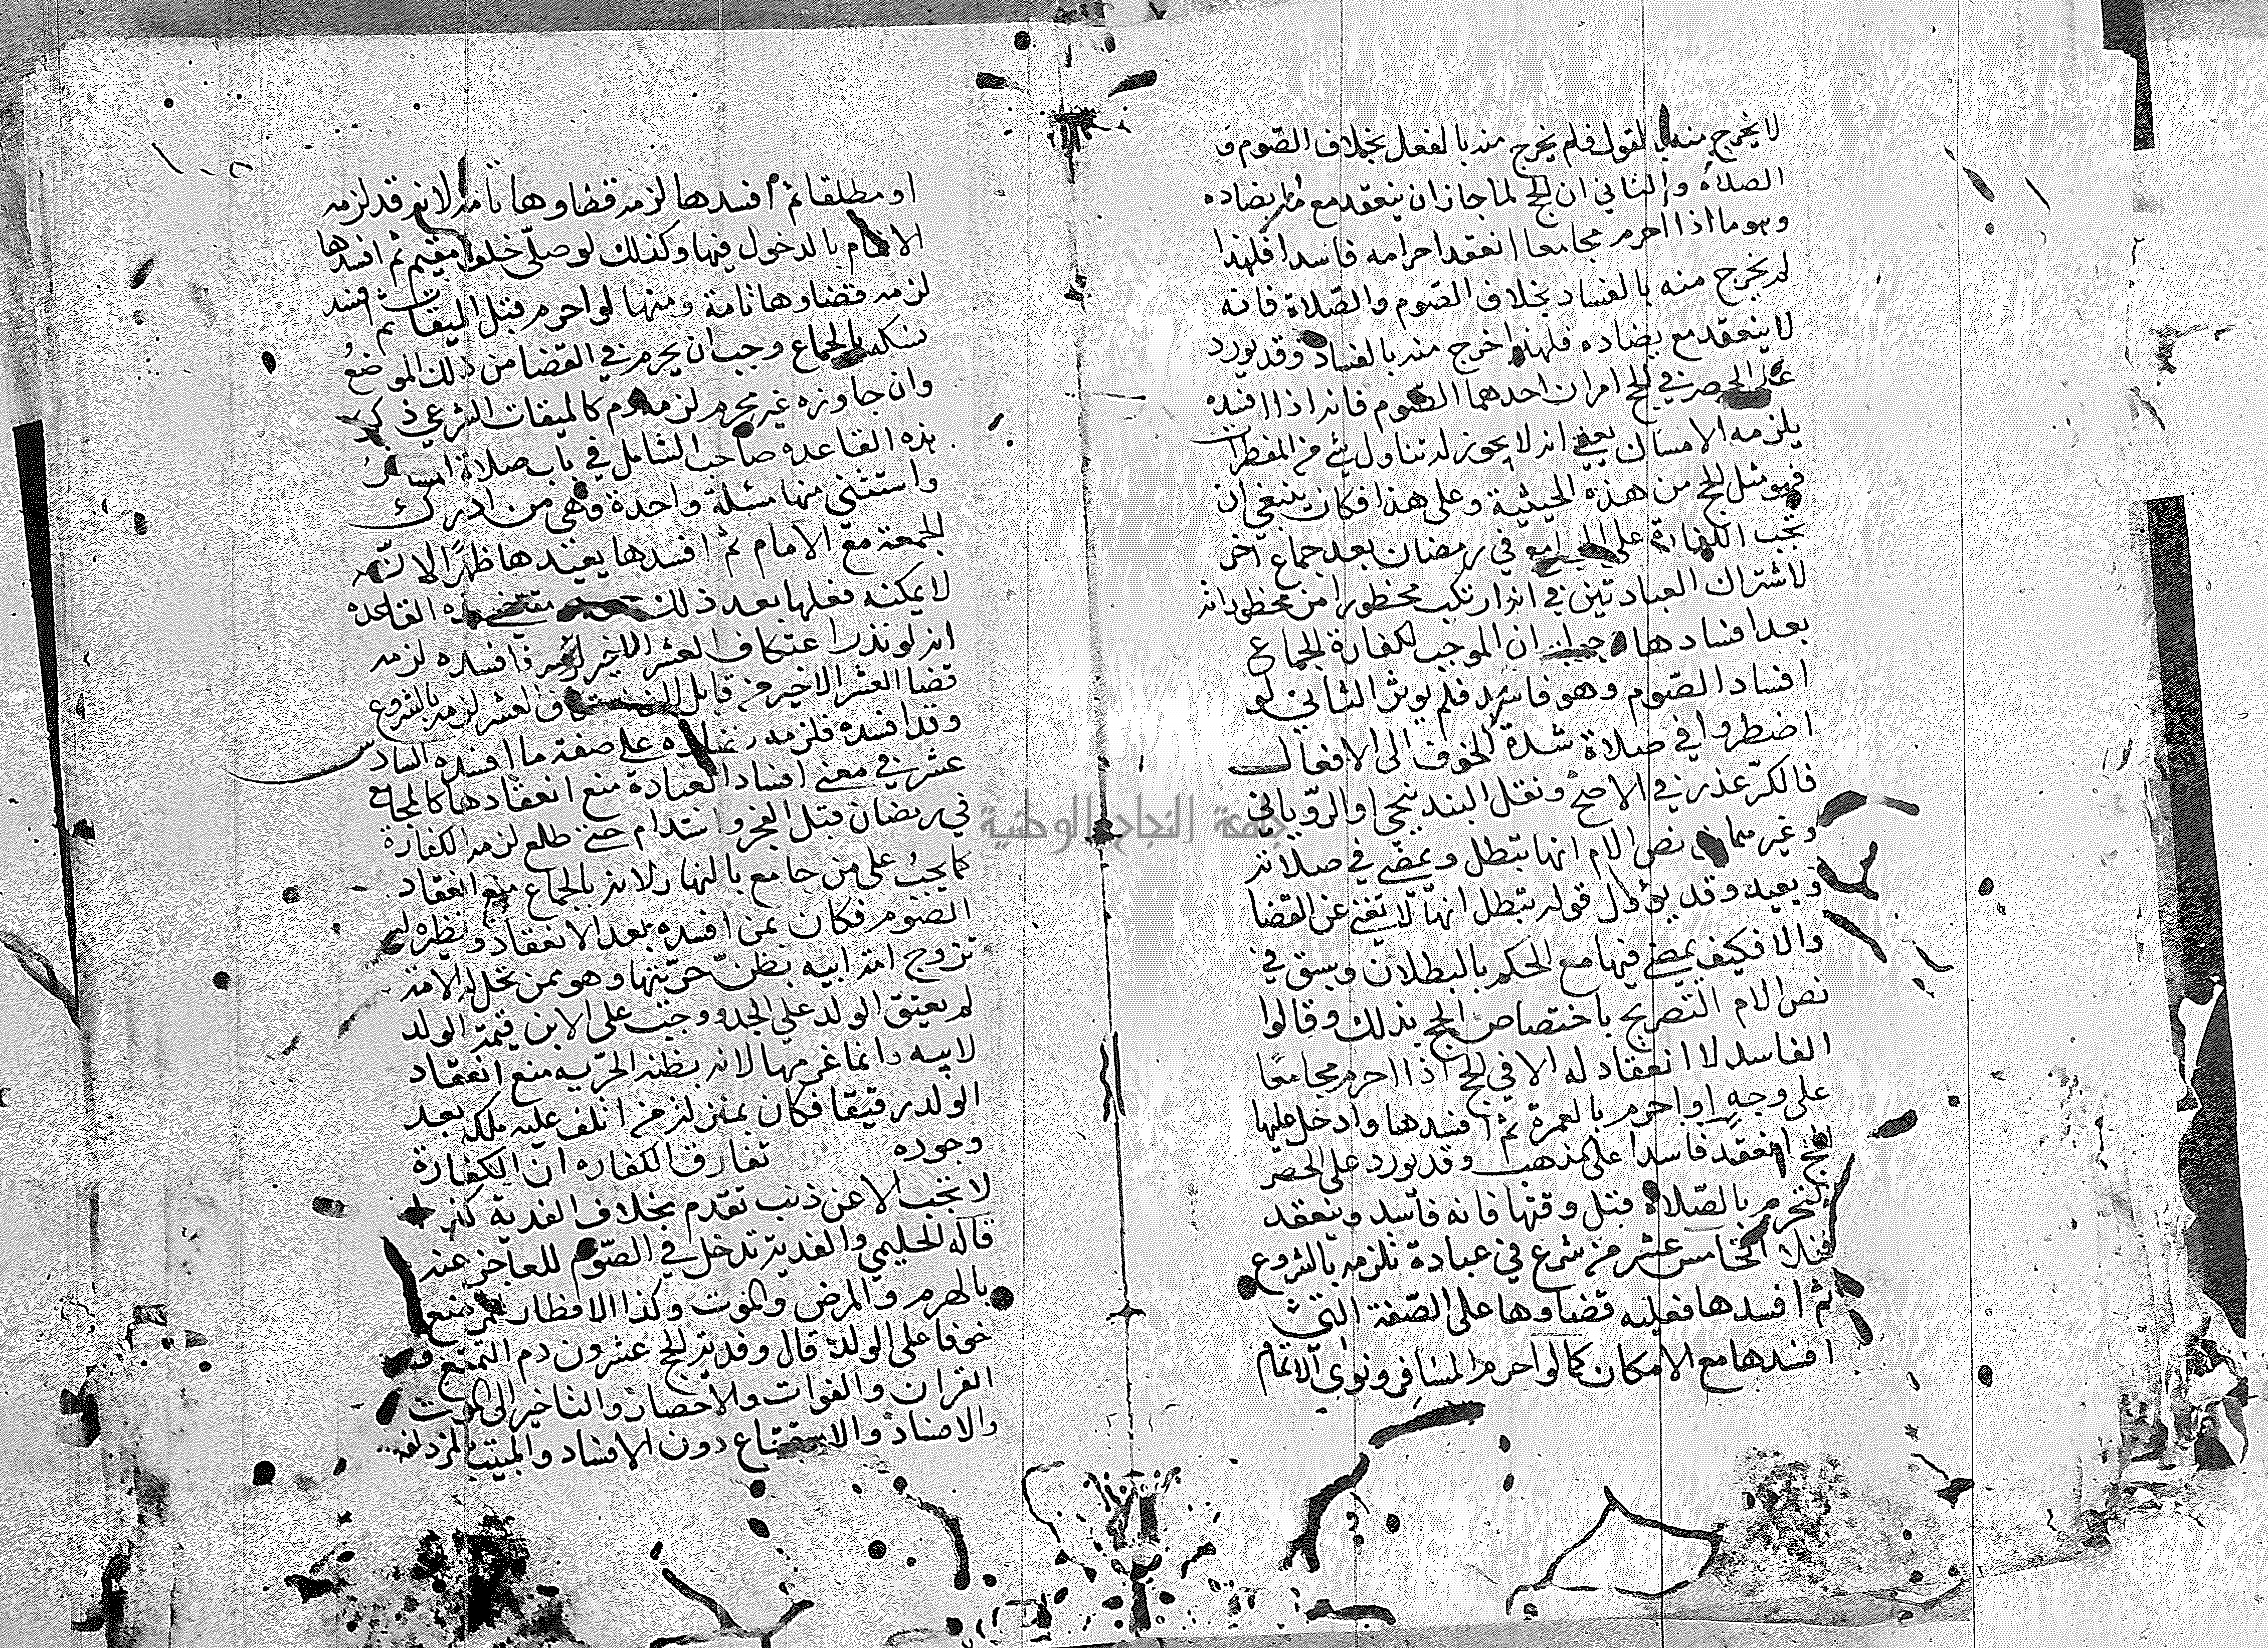 لا يخرج منه بالقول فلم يخرج منه بالفعل بخلاف الصّوم و
الصلاة والثاني ان الحج لما جاز ان ينعقد مع ما يضاده
وهو ما اذا احرم مجامعا انعقد احرامه فاسدا فلهذا
لم يخرج منه بالفساد بخلاف الصّوم والصّلاة فانه
لا ينعقد مع يضاده فلهذا خرج منه بالفساد وقد يورد
على الحصر في الحج امران احدهما الصّوم فانه اذا افسده
يلزمه الامساك يعني انه لا يجوز له تناول شي من المفطرات
فهو مثل الحج من هذه الحيثية وعلى هذا فكان ينبغي ان
تجب الكفارة على المجامع في رمضان بعد جماع آخر
لاشتراك العبادتين في انه ارتكب محظورا من محظوراته
بعد افسادها وجوابه ان الموجب لكفارة الجماع
افساد الصّوم وهو فاسد فلم يوثر الثاني لو
اضطروا في صلاة شدة الخوف الى الافعال
فالكرّ عذر في الاصح ونقل البندنيجي والرّوياني
وغيرهما نص الام انها تبطل ويمضي في صلاته
ويعيد وقد يؤول قوله تبطل انها لا تغني عن القضا
والا فكيف يمضي فيها مع الحكم بالبطلان وسبق في
نص الام التصريح باختصاص الحج بذلك وقالوا
الفاسد لا انعقاد له الا في الحج اذا احرم مجامعًا
على وجهٍ او احرم بالعمرة ثم افسدها وادخل عليها
الحج انعقد فاسدا على المذهب وقد يورد على الحصر
التحرم بالصّلاة قبل وقتها فانه فاسد وينعقد
نفلا الخامس عشر من شرع في عبادة تلزمه بالشروع
ثم افسدها فعليه قضاوها على الصّفة التي
افسدها مع الامكان كما لو احرم المسافر ونوى الاتمام
او مطلقا ثم افسدها لزمه قضاوها تامة لانه قد لزمه
الاتمام بالدخول فيها وكذلك لو صلّى خلف مقيم ثم افسدها
لزمه قضاوها تامة ومنها لو احرم قبل الميقات ثم افسد
نسكه بالجماع وجب ان يحرم في القضا من ذلك الموضع
وان جاوزه غير محرم لزمه دم كالميقات الشرعي ذكر
هذه القاعدة صاحب الشامل في باب صلاة المسافر
واستثنى منها مسئلة واحدة وهي من ادرك
الجمعة مع الامام ثم افسدها يعيدها ظهرًا لانّه
لا يمكنه فعلها بعد ذلك مقتضى هذه القاعدة
انه لو نذر اعتكاف العشر الاخير فافسده لزمه
قضا العشر الاخير من قابل لان اعتكاف العشر لزمه بالشروع
وقد افسده فلزمه على صفة ما افسده السادس
عشر في معنى افساد العبادة منع انعقادها كالمجامع
في رمضان قبل الفجر واستدام حتى طلع لزمه الكفارة
كما يجب على من جامع بالنهار لانه بالجماع منع انعقاد
الصوم فكان بمن افسده بعد الانعقاد ونظيره
تزوج امة ابيه بظنّ حرّيتها وهو ممن تحل له الامة
لم يعتق الولد على الجد ووجب على الابن قيمة الولد
لابيه وانما غرمها لانه بظنه الحرّيه منع انعقاد
الولد رقيقا فكان بمنزلة من اتلف عليه ملكه بعد
وجوده تفارق الكفاره ان الكفارة
لا تجب الا عن ذنب تقدم بخلاف الفدية
قاله الحليمي والفدية تدخل في الصّوم للعاجز عنه
بالهرم والمرض والموت وكذا الافطار للمرضع
خوفا على الولد قال وفدية الحج عشرون دم التمتع و
القران والفوات والاحصار والتاخير الى الموت
والافساد والاستمتاع دون الافساد والمبيت بمزدلفه
جامعة النجاح الوطنية